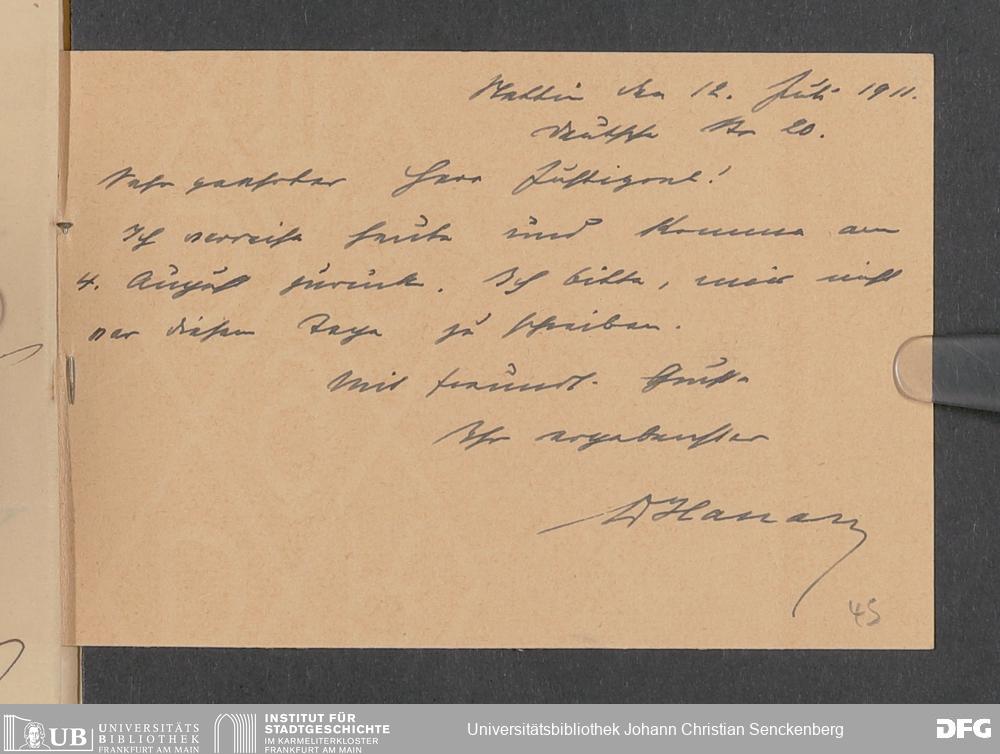 Stettin den 12. Juli 1911.
Deutsche Str 20.
Sehr geehrter Herr Justizrat!
Ich verreise heute und komme am
4. August zurück. Ich bitte, mir nicht
vor diesem Tage zu schreiben.
Mit freundl. Gruß
Ihr ergebenster
45
UB UNIVERSITÄTS
BIBLIOTHEK
FRANKFURT AM MAIN
INSTITUT FÜR
STADTGESCHICHTE
IM KARMELITERKLOSTER
FRANKFURT AM MAIN
Universitätsbibliothek Johann Christian Senckenberg
DFG